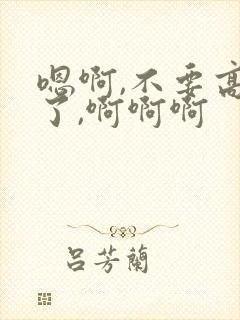 嗯啊,不要高
了,啊啊啊
吕芳蘭